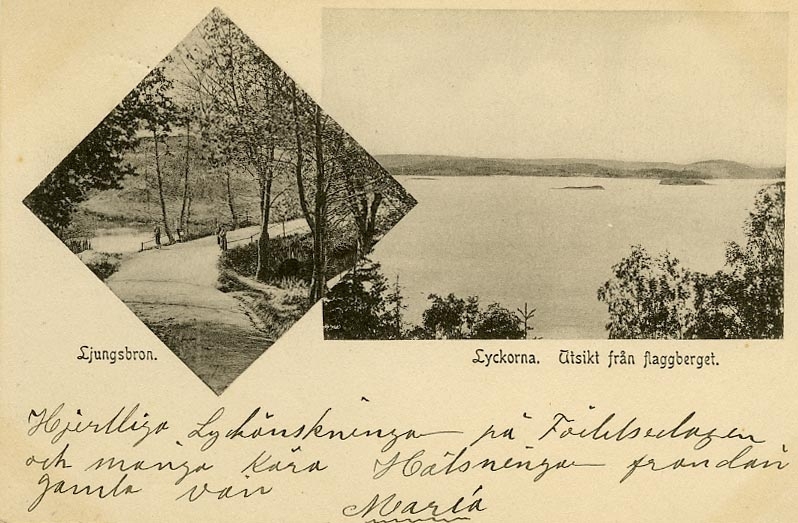 Ljungsbron.
Lyckorna. Utsikt från flaggberget.
Hjertliga Lyckönskninga på Födelsedagen
och många Kära Hälsninga från din
gamla vän
Maria